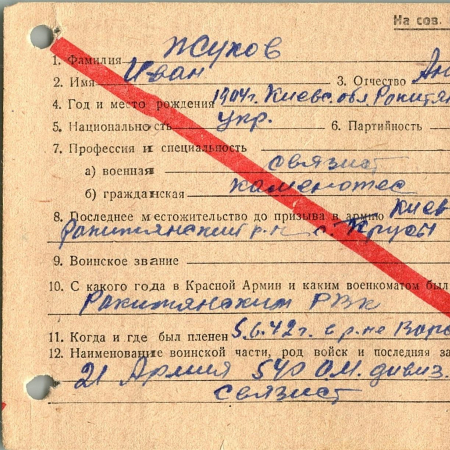 На сов.
1. Фамилия Жуков
2. Имя Иван 3. Отчество Ан
4. Год и место рождения 1904г. Киевс. обл Ракитян
5. Национальность укр. 6. Партийность
7. Профессия и специальность
а) военная связист
б) гражданская каменотес
8. Последнее местожительство до призыва в армию Киев
Ракитянский р-н с.
9. Воинское звание
10. С какого года в Красной Армии и каким военкоматом был
Ракитянским РВК
11. Когда и где был пленен 5.6.42г. в р-не
12. Наименование воинской части, род войск и последняя за
21 Армия 540 О.М. дивиз.
связист